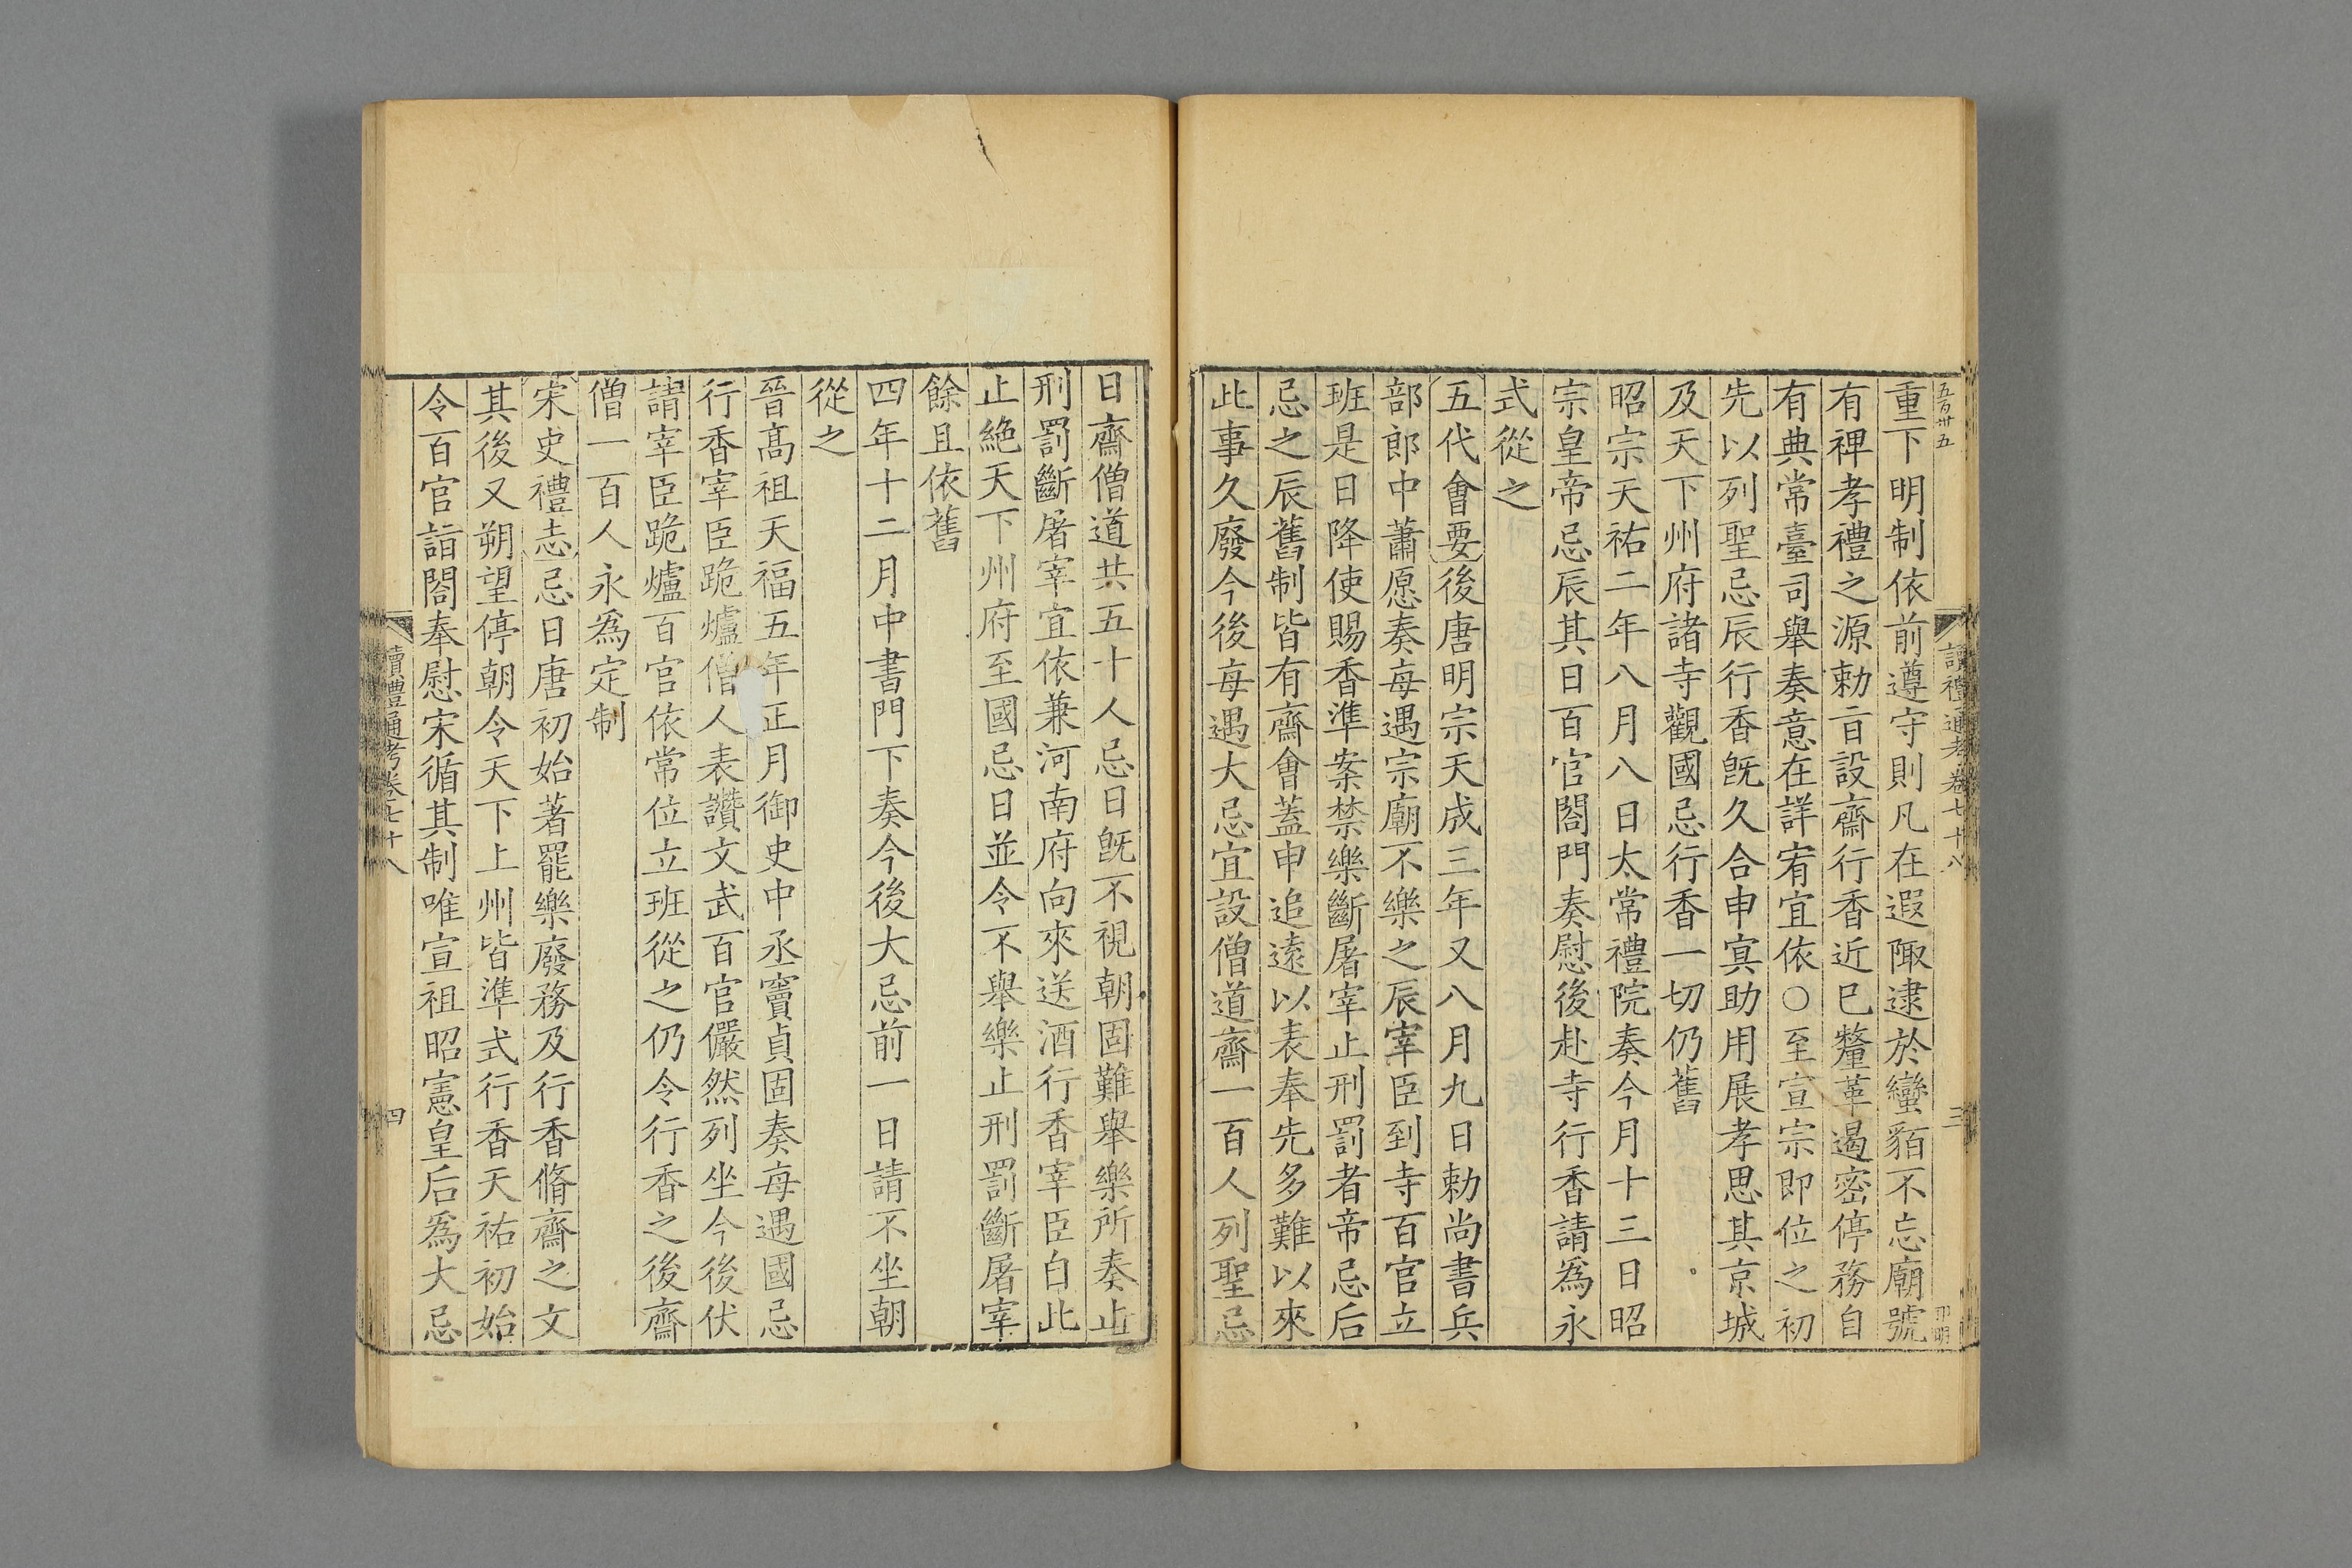 五百卅五
讀禮通考卷七十八
三
重下明制依前遵守則凡在遐陬逮於蠻貊不忘廟號
有裨孝禮之源勅旨設齋行香近巳釐革遏密停務自
有典常臺司舉奏意在詳宥宜依○至宣宗即位之初
先以列聖忌辰行香旣久合申冥助用展孝思其京城
及天下州府諸寺觀國忌行香一切仍舊
昭宗天祐二年八月八日太常禮院奏今月十三日昭
宗皇帝忌辰其日百官閤門奏慰後赴寺行香請為永
式從之
五代會要後唐明宗天成三年又八月九日勅尚書兵
部郎中蕭愿奏每遇宗廟不樂之辰宰臣到寺百官立
班是日降使賜香準案禁樂斷屠宰止刑罰者帝忌后
忌之辰舊制皆有齋會蓋申追遠以表奉先多難以來
此事久廢今後每遇大忌宜設僧道齋一百人列聖忌
日齋僧道共五十人忌日旣不視朝固難舉樂所奏止
刑罰斷屠宰宜依兼河南府向來送酒行香宰臣白此
止絶天下州府至國忌日並令不舉樂止刑罰斷屠宰
餘且依舊
四年十二月中書門下奏今後大忌前一日請不坐朝
從之
晉髙祖天福五年正月御史中丞竇貞固奏每遇國忌
行香宰臣跪爐僧人表讚文武百官儼然列坐今後伏
請宰臣跪爐百官依常位立班從之仍令行香之後齋
僧一百人永為定制
宋史禮志忌日唐初始著罷樂廢務及行香脩齋之文
其後又朔望停朝令天下上州皆準式行香天祐初始
令百官詣閤奉慰宋循其制唯宣祖昭憲皇后為大忌
讀禮通考卷七十八
四